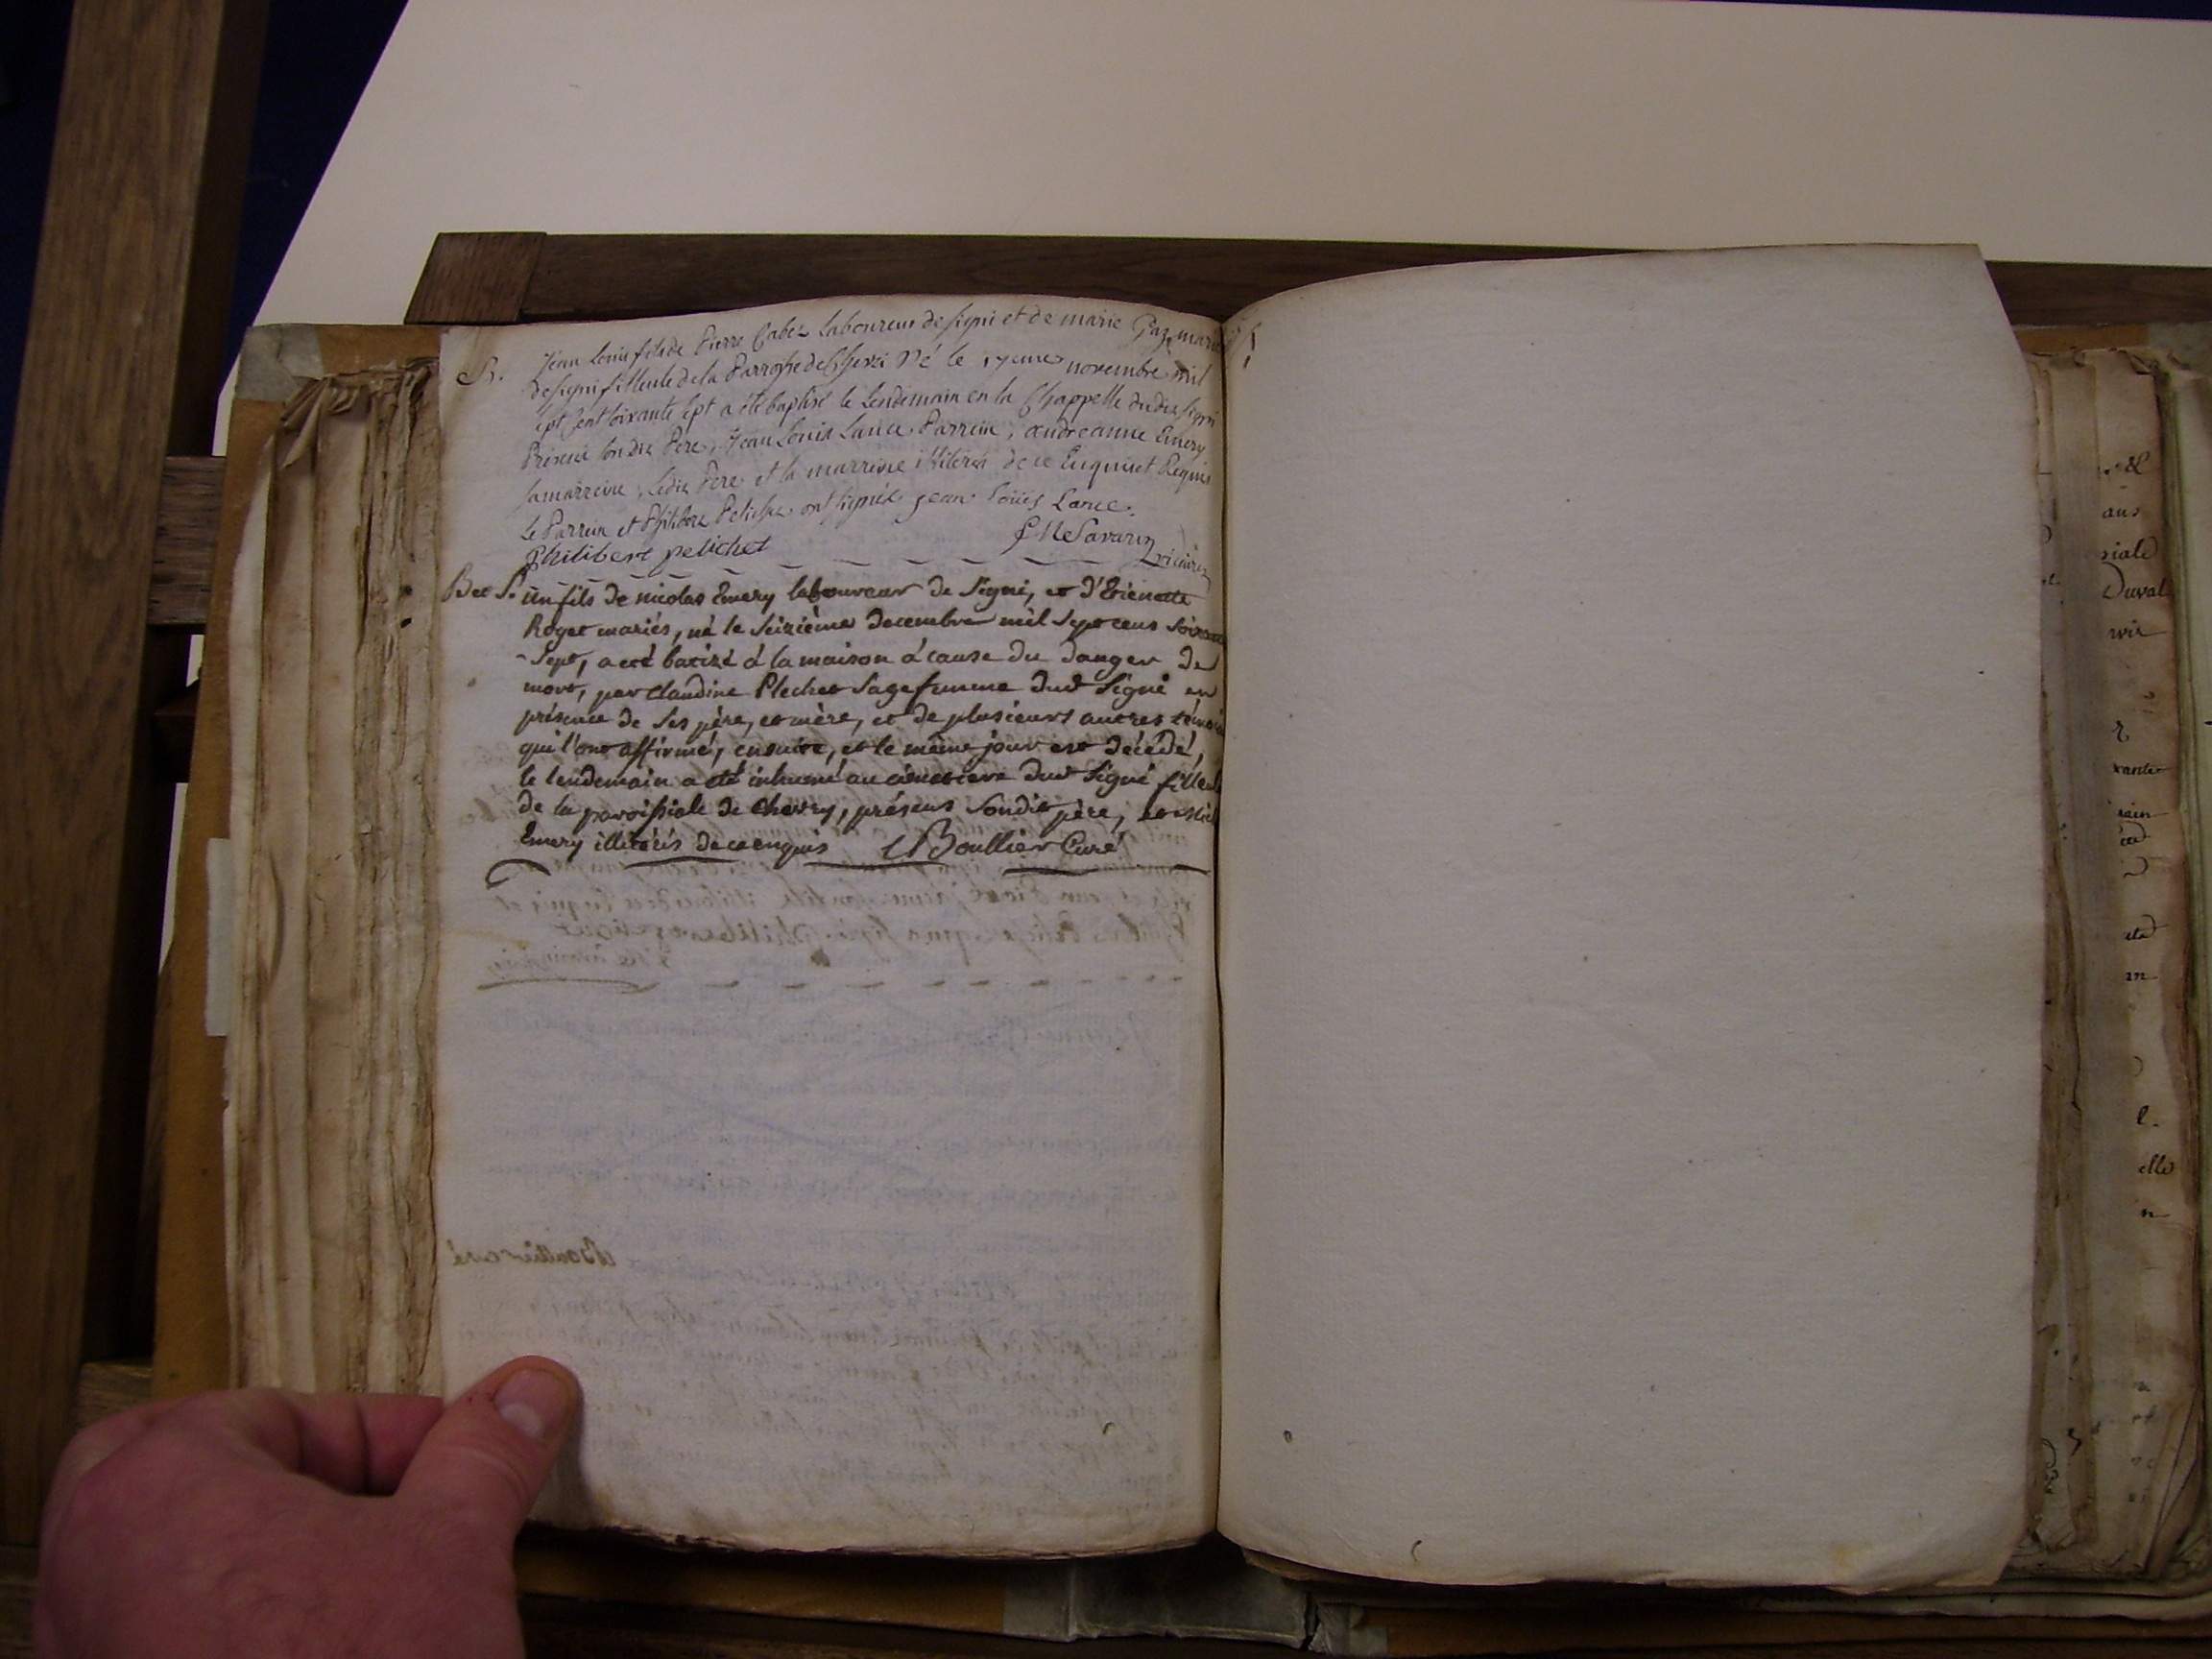 B. Jean Louis fils de Pierre Cabez laboureur de signi et de marie Gaz marie
de signi filleule de la Parroisse de Chevri Né le 17eme novembre mil
sept cent soixante sept a été baptisé le Lendemain en la Chappelle dudit signi
Présent son dit Pere, Jean Louis Lance Parrein, andreanne Emery
sa marreine, ledit Pere et la marreine illiteres de ce Enquis et Requis
Le Parrein et Philibert Pelichet ont signés jean loüis Lance.
Philibert pelichet Savarin vicaire
B et S. un fils de nicolas Emery laboureur de Signi, et d'Etienette
Roget mariés, né le Seizième decembre mil Sept cens Soixante
-Sept, a eté batizé à la maison à cause du danger de
mort, par Claudine Plechet Sage femme dud Signi en
présence de Ses père, et mère, et de plusieurs autres témoins
qui l'ont affirmé, ensuite, et le même jour est décédé,
le lendemain a eté inhumé au cimetiere dud Signi filleule
de la paroissiale de Chevry, présens Sondit père,
Emery illiterés de ce enquis Boullier Curé